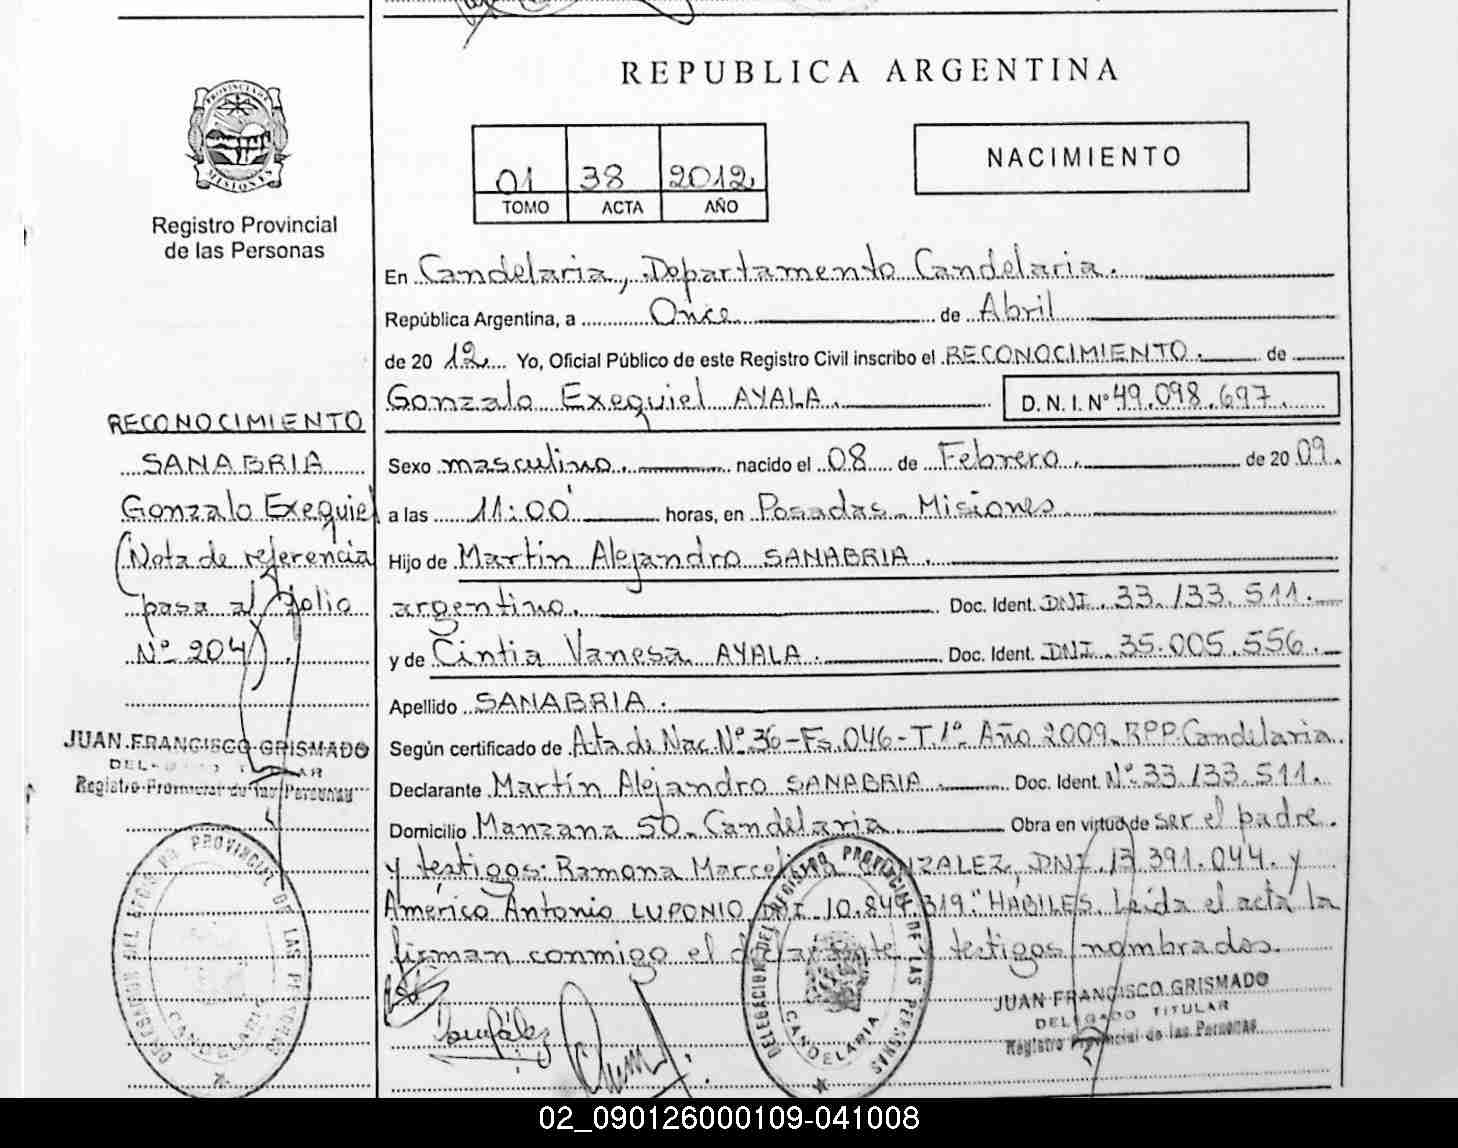 REPUBLICA ARGENTINA
PROVINCIA DE
MISIONES
Registro Provincial
de las Personas
01 38 2012
TOMO ACTA AÑO
NACIMIENTO
En Candelaria, Departamento Candelaria.
República Argentina, a Once de Abril
de 2012 Yo, Oficial Público de este Registro Civil inscribo el RECONOCIMIENTO. de
Gonzalo Exequiel AYALA. D. N. I. Nº 49.098.697.
Sexo masculino. nacido el 08 de Febrero. de 2009.
a las 11:00 horas, en Posadas - Misiones.
Hijo de Martín Alejandro SANABRIA.
argentino. Doc. Ident. DNI. 33.133.511.
y de Cintia Vanesa AYALA. Doc. Ident. DNI. 35.005.556.
Apellido SANABRIA.
Según certificado de Acta de Nac. Nº 36 - Fs. 046 - T. 1º Año 2009. RPP. Candelaria.
Declarante Martín Alejandro SANABRIA Doc. Ident. Nº 33.133.511.
Domicilio Manzana 50 - Candelaria Obra en virtud de ser el padre.
y testigos: Ramona DNI. 13.391.044. y
Américo Antonio LUPONIO, DNI 10.847.319. "HABILES. Leída el acta la
firman conmigo el declarante y testigos nombrados.
González
JUAN FRANCISCO GRISMADO
DELEGADO TITULAR
Registro Provincial de las Personas
DELEGACION DEL REGISTRO PROVINCIAL DE LAS PERSONAS
CANDELARIA
RECONOCIMIENTO
SANABRIA
Gonzalo Exequiel
(Nota de referencia
pasa al folio
Nº 204)
JUAN FRANCISCO GRISMADO
DELEGADO TITULAR
Registro Provincial de las Personas
DELEGACION DEL REGISTRO PROVINCIAL DE LAS PERSONAS
CANDELARIA
02_090126000109-041008